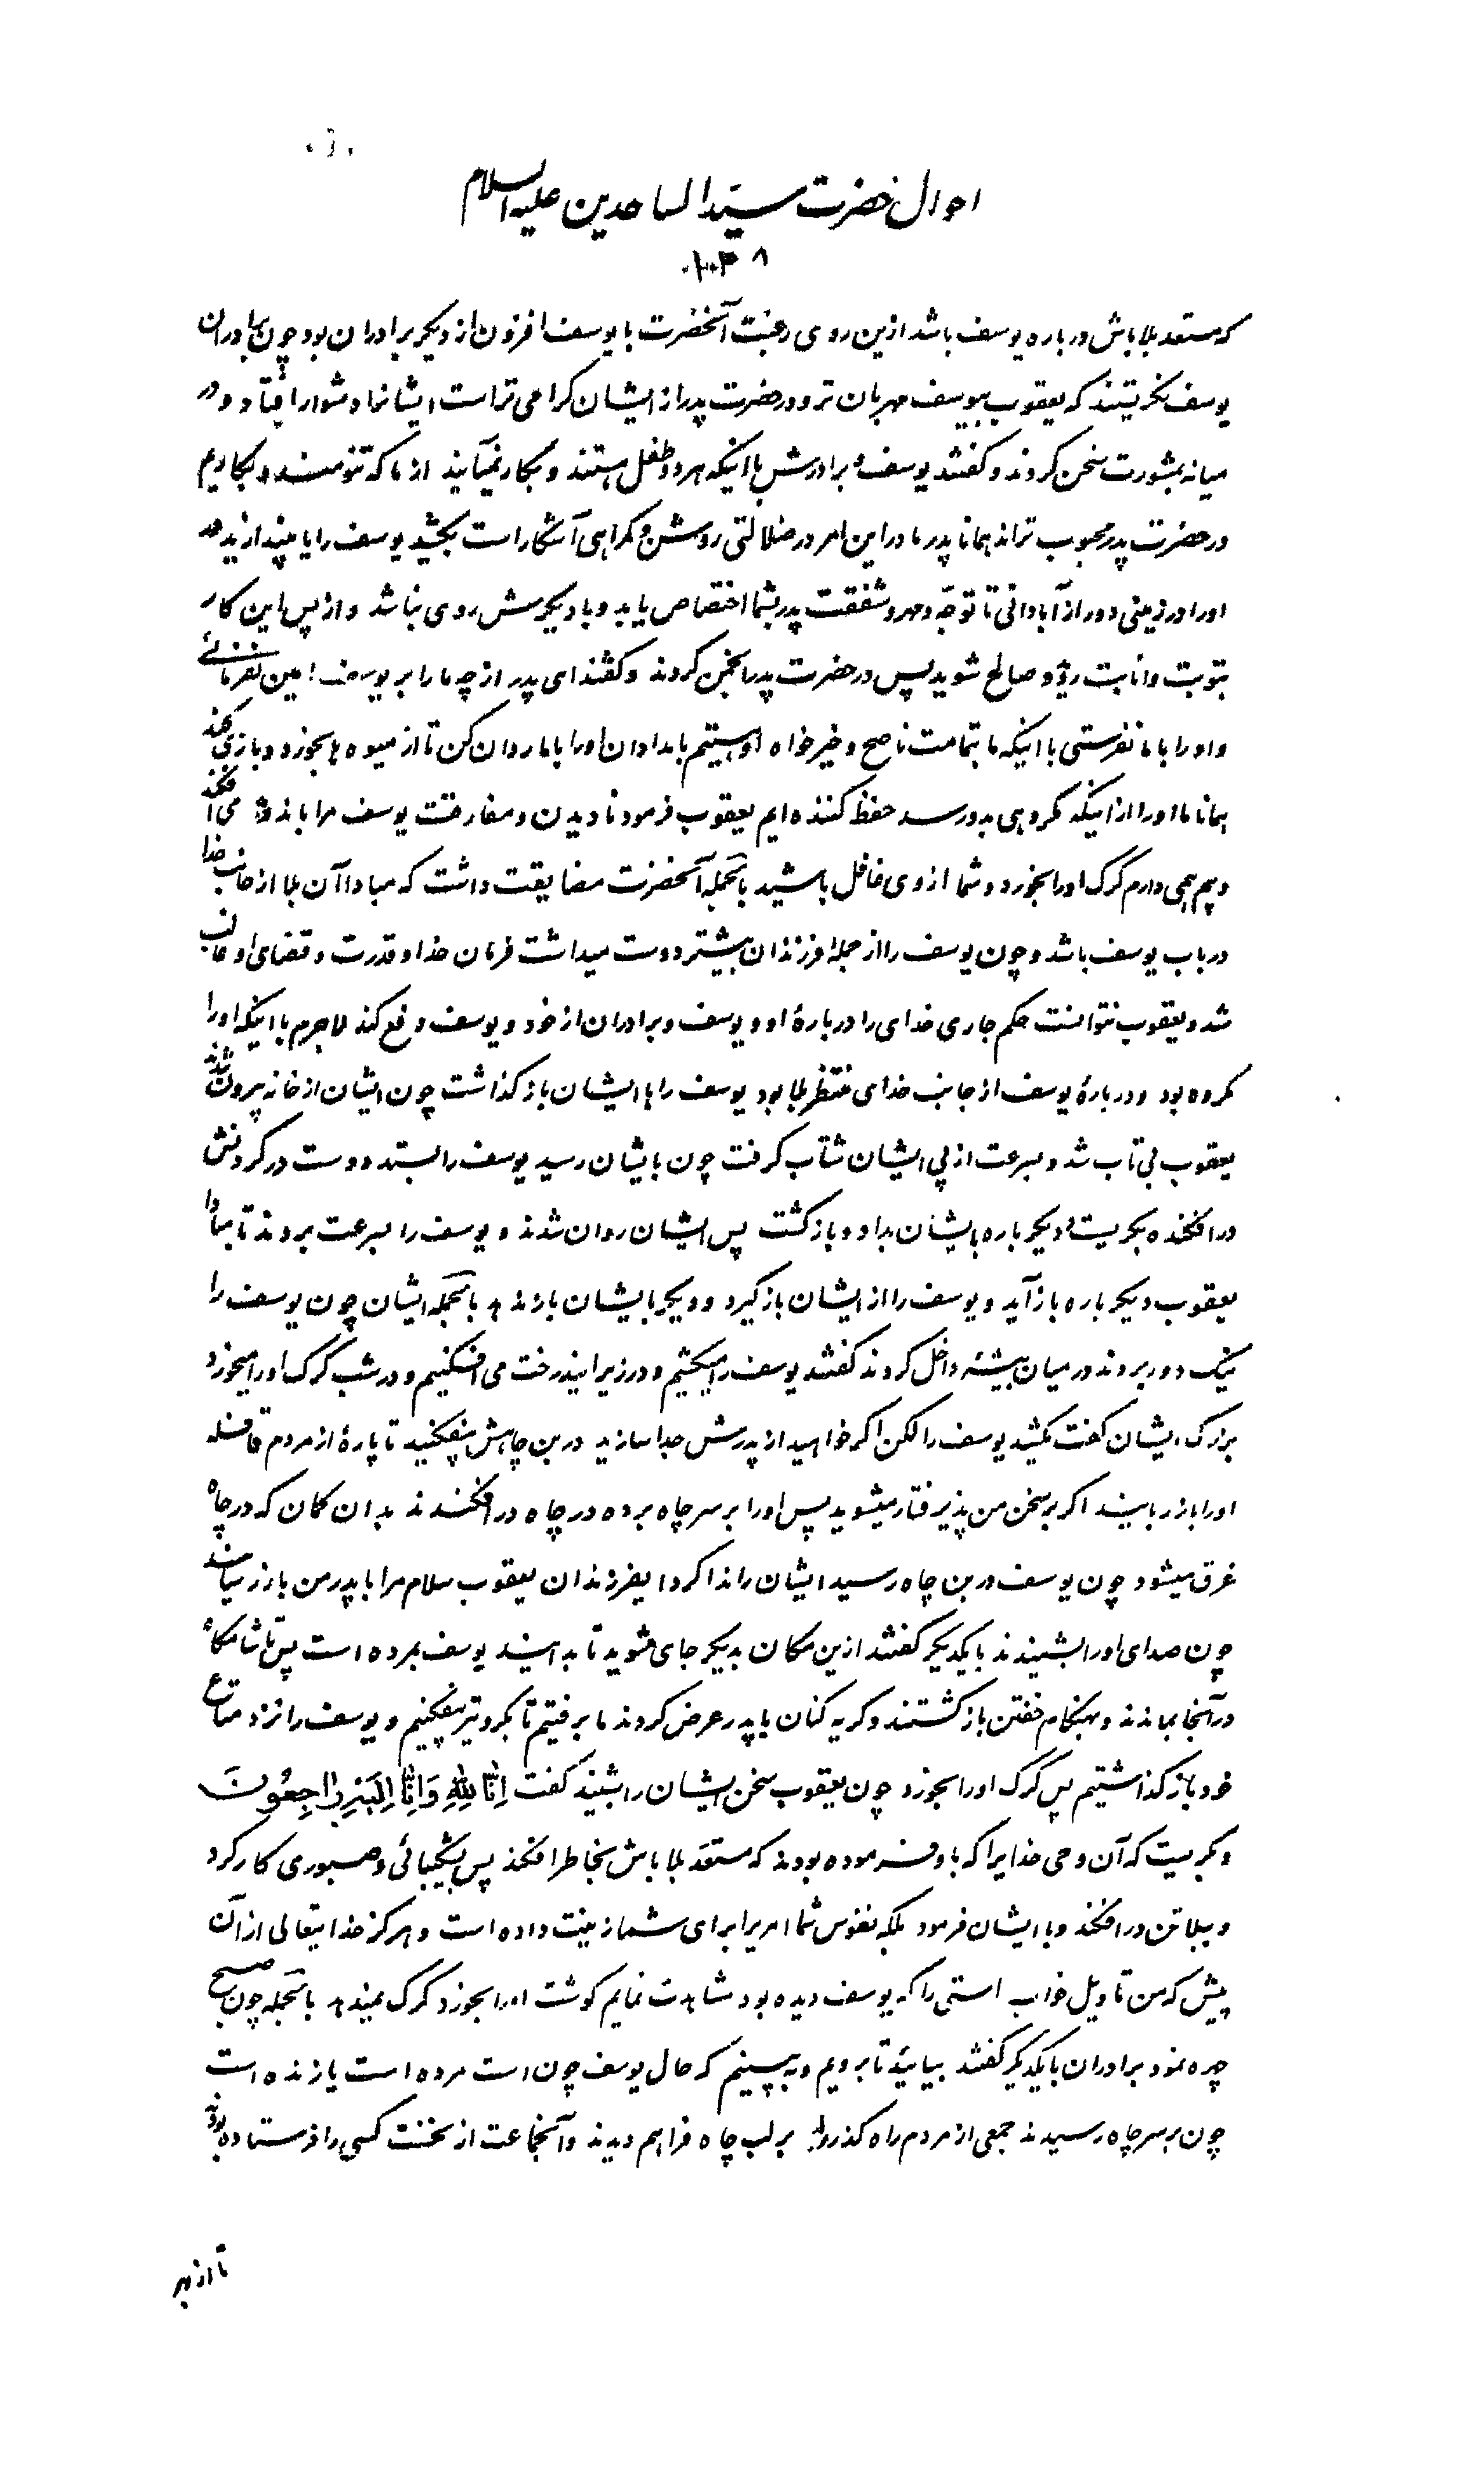 احوال حضرت سیّد الساجدین علیه السلام
۱۰۳۸
که مستعد بلا باش درباره یوسف باشد ازین روی رغبت آنحضرت با یوسف افزون از دیگر برادران بود چون برادران
یوسف نگریستند که یعقوب بیوسف مهربان تر و در حضرت پدر از ایشان گرامی تر است ایشانرا دشوار افتاد و در
میانه بمشورت سخن کردند و گفتند یوسف و برادرش با اینکه هر دو طفل هستند و بکار نمیآیند از ما که تنومند و بکاریم
در حضرت پدر محبوب تراند همانا پدر ما در این امر در ضلالتی روشن و گمراهی آشکار است بکشید یوسف را یا بیندازید
اورا در زمینی دور از آبادانی تا توجّه و مهر و شفقت پدر بشما اختصاص یابد و با دیگرش روی نباشد و از پس این کار
بتوبت و انابت روید و صالح شوید پس در حضرت پدر انجمن کردند و گفتند ای پدر از چه ما را بر یوسف امین نفرمائی
و او را با ما نفرستی با اینکه ما بتمامت ناصح و خیرخواه او هستیم بامدادان او را با ما روان کن تا از میوه ها بخورد و بازی کند
همانا ما او را از اینکه مکروهی بدو رسد حفظ کننده ایم یعقوب فرمود نادیدن و مفارقت یوسف مرا باندوه می افکند
و بیم همی دارم گرگ او را بخورد و شما از وی غافل باشید بالجمله آنحضرت مضایقت داشت که مبادا آن بلا از جانب خدا
در باب یوسف باشد و چون یوسف را از جمله فرزندان بیشتر دوست میداشت فرمان خدا و قدرت و قضای او غالب
شد و یعقوب نتوانست حکم جاری خدای را دربارهٔ او و یوسف و برادران از خود و یوسف دفع کند لاجرم با اینکه او را
مکروه بود و دربارهٔ یوسف از جانب خدای منتظر بلا بود یوسف را با ایشان باز گذاشت چون ایشان از خانه بیرون شدند
یعقوب بی تاب شد و بسرعت از پی ایشان شتاب گرفت چون بایشان رسید یوسف را بستد و دست در گردنش
در افکنده بگریست و دیگر باره بایشان بداد و بازگشت پس ایشان روان شدند و یوسف را بسرعت بردند تا مبادا
یعقوب دیگر باره باز آید و یوسف را از ایشان باز گیرد و دیگر بایشان باز ندهد بالجمله ایشان چون یوسف را
نیک دور بردند در میان بیشه داخل کردند گفتند یوسف را میکشیم و در زیر ایندرخت می افکنیم و در شب گرگ او را میخورد
بزرگ ایشان گفت مکشید یوسف را لکن اگر خواهید از پدرش جدا سازید در بن چاهش بیفکنید تا پارهٔ از مردم قافله
او را باز ربایند اگر بر سخن من پذیرفتار میشوید پس او را بر سر چاه برده در چاه در افکندند بدان گمان که در چاه
غرق میشود چون یوسف در بن چاه رسید ایشان را ندا کرد ایفرزندان یعقوب سلام مرا با پدر من باز رسانید
چون صدای او را بشنیدند با یکدیگر گفتند ازین مکان بدیگر جای مشوید تا بدانید یوسف بمرده است پس تا شامگاه
در آنجا بماندند و بهنگام خفتن بازگشتند و گریه کنان با پدر عرض کردند ما برفتیم تا بگرو تیر بیفکنیم و یوسف را نزد متاع
خود باز گذاشتیم پس گرگ او را بخورد چون یعقوب سخن ایشان را شنید گفت اِنّا لِلّهِ وَاِنّا اِلَیْهِ راجِعُونَ
و بگریست که آن وحی خدایرا که باو فرموده بودند که مستعد بلا باش بخاطر افکند پس بشکیبائی و صبوری کار کرد
و ببلا تن در افکند و با ایشان فرمود بلکه نفوس شما امریرا برای شما زینت داده است و هرگز خدایتعالی از آن
پیش که من تاویل خواب راستی را که یوسف دیده بود مشاهدت نمایم گوشت او را بخورد گرگ نمیدهد بالجمله چون صبح
چهره نمود برادران با یکدیگر گفتند بیائید تا برویم و به بینیم که حال یوسف چون است مرده است یا زنده است
چون بر سر چاه رسیدند جمعی از مردم راه گذر را بر لب چاه فراهم دیدند و آنجماعت از نخست کسی را فرستاده بودند
تا از بهر